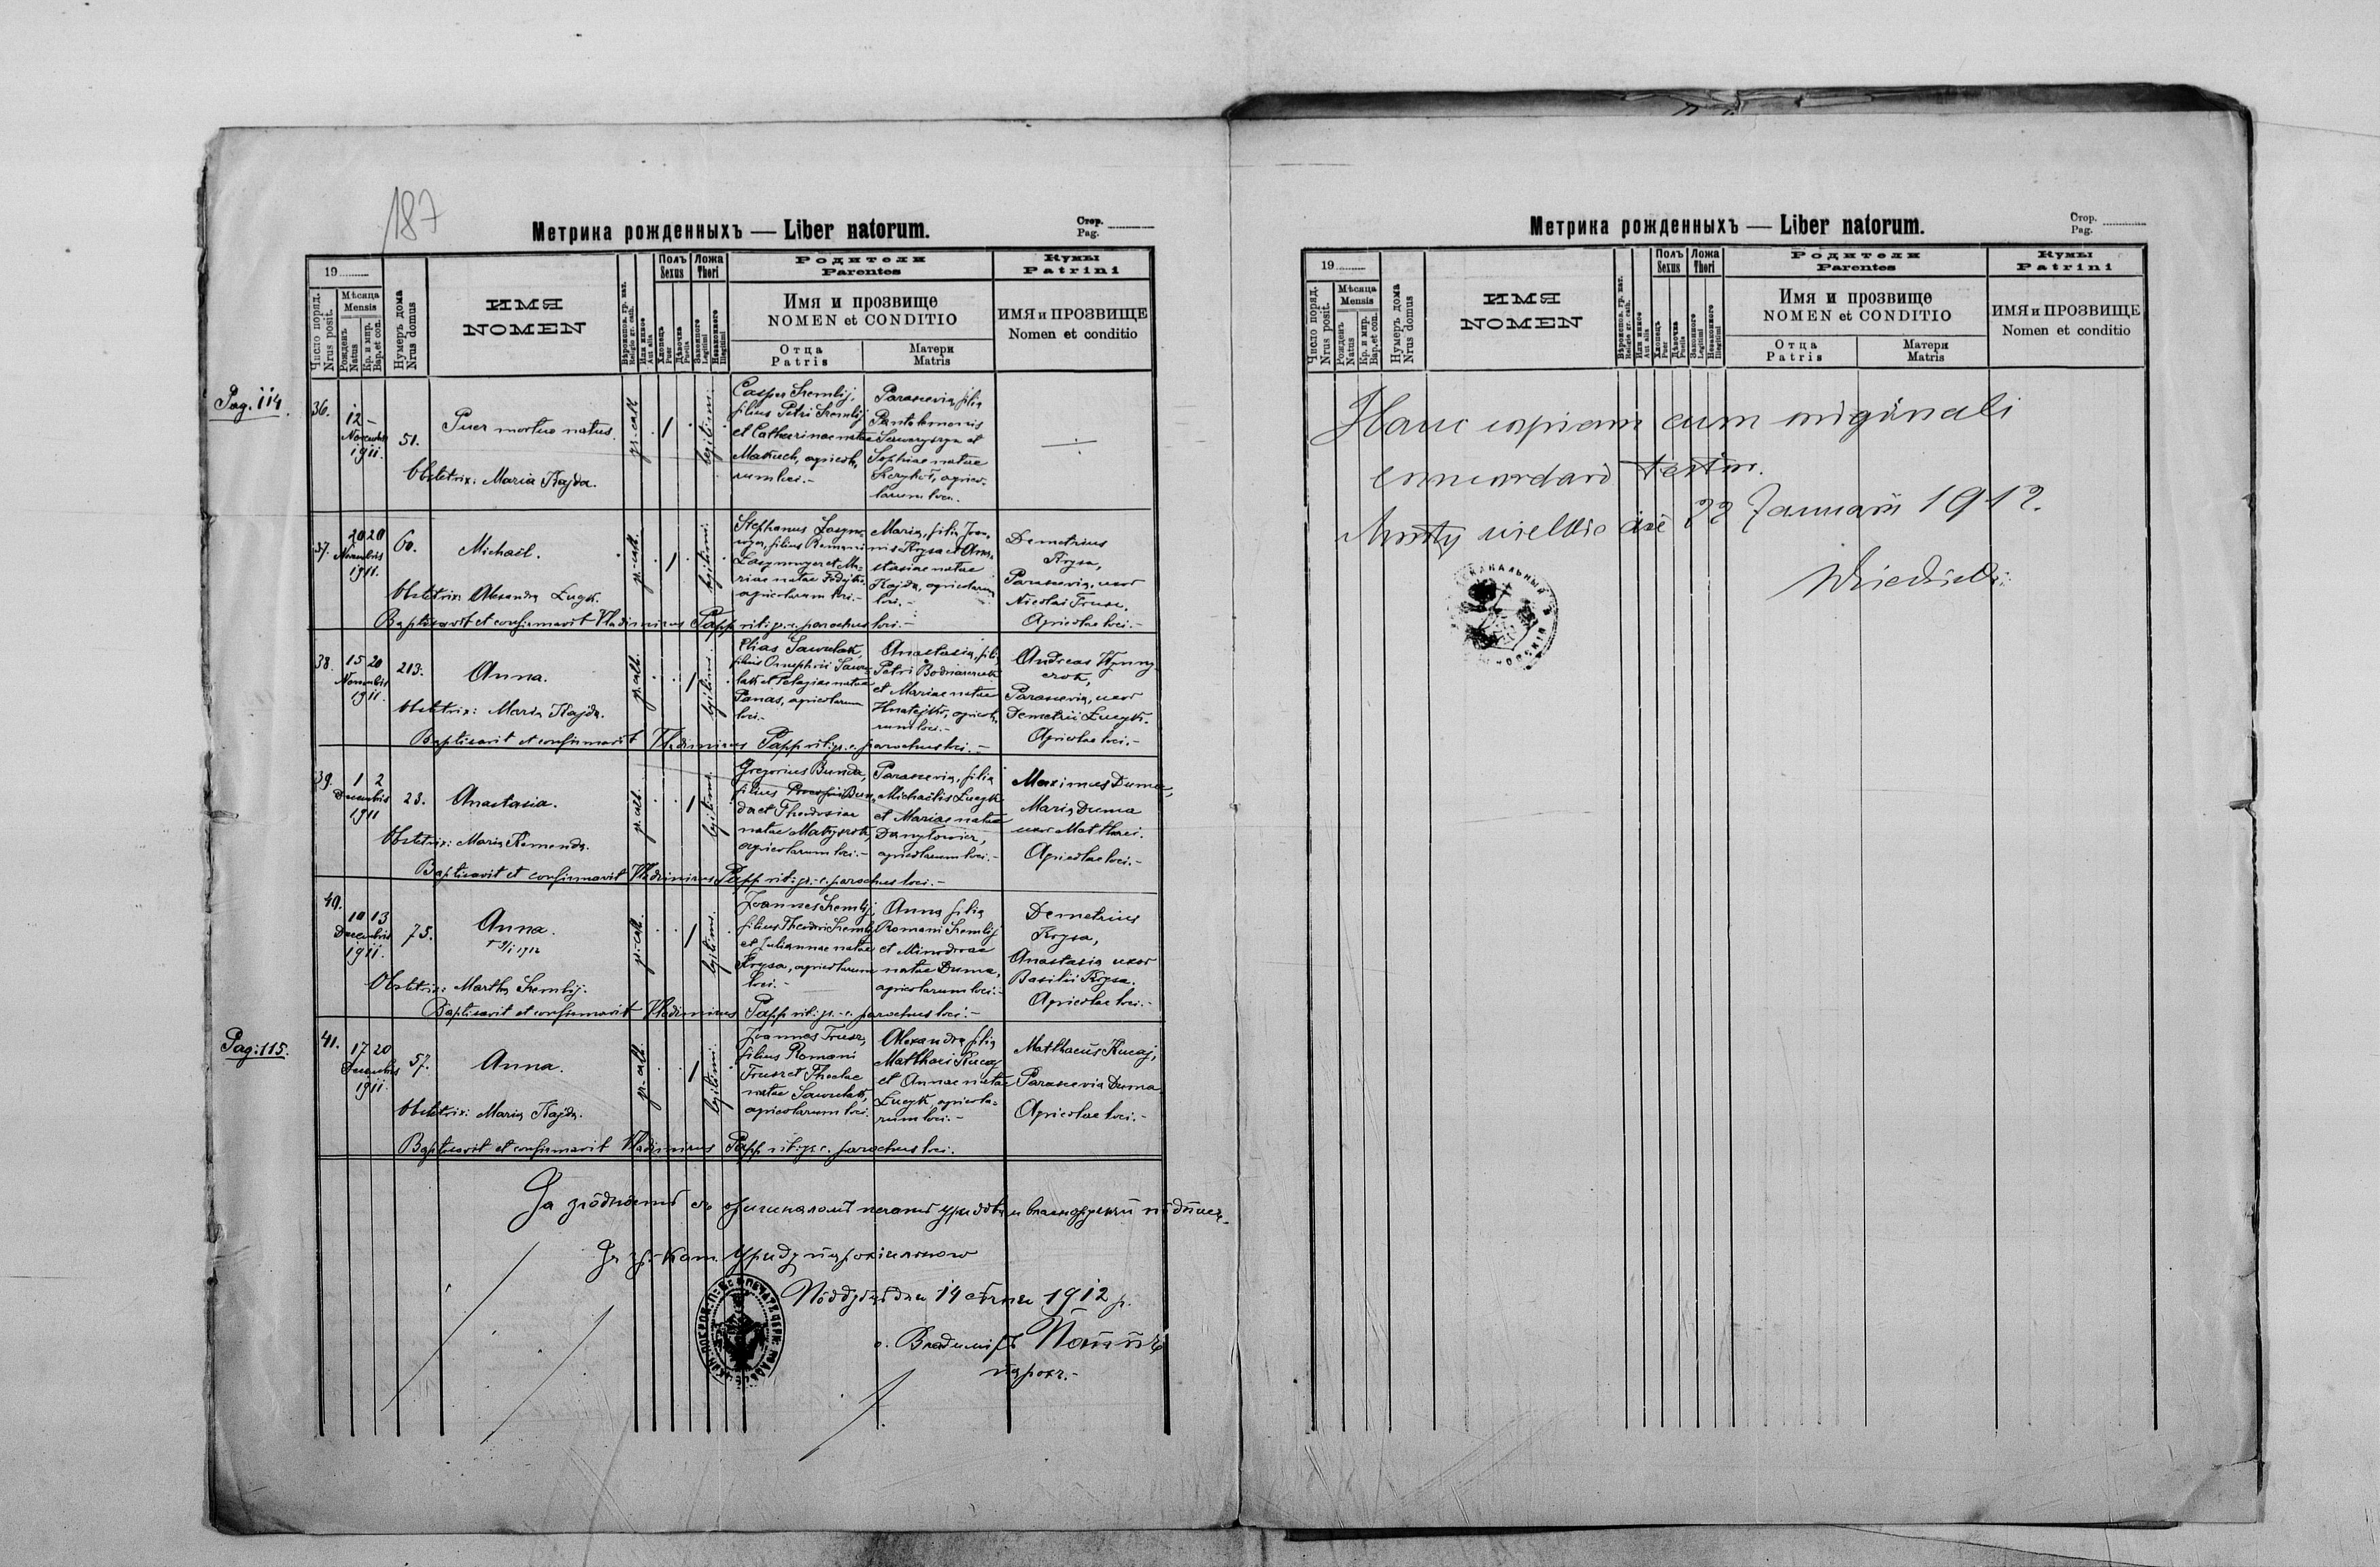 187
Метрика рожденныхъ — Liber natorum.
Стор.
Pag.
19
Число поряд.
Nrus posit.
Мѣсяца
Mensis
Рожденъ
Natus
Кр. и мир.
Bap. et con.
Нумеръ дома
Nrus domus
ИМЯ
NOMEN
Вѣроиспов. гр. кат.
Religio gr. cath.
Или иное
Aut alia
Полъ
Sexus
Хлопецъ
Puer
Дѣвочка
Puella
Ложа
Thori
Законного
Legitimi
Незаконного
Illegitimi
Родители
Parentes
Имя и прозвище
NOMEN et CONDITIO
Отца
Patris
Матери
Matris
Кумы
Patrini
ИМЯ и ПРОЗВИЩЕ
Nomen et conditio
Pag. 114.
36.
12 –
Novembris
1911.
51.
Puer mortuo natus.
gr. cath.
1
legitimi.
Casper Kremlij,
filius Petri Kremlij
et Catharinae natae
Makuch, agricola-
rum loci.-
Parascevia, filia
Pantelemonis
et
Sophiae natae
agrico-
larum loci.
Obstetrix: Maria Kajda.
37.
20 20
Novembris
1911.
60.
Michaël.
gr. cath.
1
legitimi.
Stephanus
filius Romani
et Ma-
riae natae
agricolarum loci.-
Maria, filia Joan-
nis Krysa et Ana-
stasiae natae
Kajda, agricolarum
loci.-
Demetrius
Krysa,
Parascevia, uxor
Nicolai Trusz.
Agricolae loci.-
Obstetrix: Alexandra Łucyk.
Baptisavit et confirmavit Vladimirus Papp rit. gr. c. parochus loci.-
38.
15 20
Novembris
1911.
213.
Anna.
gr. cath.
1
legitimi.
Elias Sawulak,
filius Onuphrii Sawu-
lak et Pelagiae natae
Panas, agricolarum
loci.-
Anastasia, filia
Petri Bodnarczuk
et Mariae natae
agricola-
rum loci.-
Andreas
Parascevia, uxor
Demetrii Łucyk.
Agricolae loci.-
Obstetrix: Maria Kajda.
Baptisavit et confirmavit Vladimirus Papp rit. gr. c. parochus loci.-
39.
1 2
Decembris
1911
23.
Anastasia.
gr. cath.
1
legitimi.
Gregorius Bunda,
filius Bun-
da et Theodosiae
natae
agricolarum loci.-
Parascevia, filia
Michaëlis Łucyk
et Mariae natae
Danyłowicz,
agricolarum loci.-
Maximus Duma,
Maria Duma
uxor Matthaei.
Agricolae loci.-
Obstetrix: Maria
Baptisavit et confirmavit Vladimirus Papp rit. gr. c. parochus loci.-
40.
10 13
Decembris
1911.
75.
Anna.
† 9/I 1912
gr. cath.
1
legitimi.
Joannes Kremlij,
filius Theodori Kremlij
et Juliannae natae
Krysa, agricolarum
loci.-
Anna filia
Romani Kremlij
et Minodorae
natae Duma,
agricolarum loci.-
Demetrius
Krysa,
Anastasia uxor
Basilii Krysa.
Agricolae loci.-
Obstetrix: Martha Kremlij.
Baptisavit et confirmavit Vladimirus Papp rit. gr.-c. parochus loci.-
Pag: 115.
41.
17 20
Decembris
1911.
57.
Anna.
gr. cath.
1
legitimi.
Joannes Trusz,
filius Romani
Trusz et Theclae
natae Sawulak,
agricolarum loci.
Alexandra filia
Matthaei Kucaj
et Annae natae
Łucyk, agricola-
rum loci.-
Matthaeus Kucaj,
Parascevia Duma
Agricolae loci.-
Obstetrix: Maria Kajda.
Baptisavit et confirmavit Vladimirus Papp rit. gr. c. parochus loci.
За зго̂дно̂сть съ оригиналомъ
За гр.-кат. Уряду парохіяльного
дня 14 січня 1912 р.
о. Владиміръ
парох.-
Метрика рожденныхъ — Liber natorum.
Стор.
Pag.
19
Число поряд.
Nrus posit.
Мѣсяца
Mensis
Рожденъ
Natus
Кр. и мир.
Bap. et con.
Нумеръ дома
Nrus domus
ИМЯ
NOMEN
Вѣроиспов. гр. кат.
Religio gr. cath.
Или иное
Aut alia
Полъ
Sexus
Хлопецъ
Puer
Дѣвочка
Puella
Ложа
Thori
Законного
Legitimi
Незаконного
Illegitimi
Родители
Parentes
Имя и прозвище
NOMEN et CONDITIO
Отца
Patris
Матери
Matris
Кумы
Patrini
ИМЯ и ПРОЗВИЩЕ
Nomen et conditio
Hanc copiam cum originali
concordare testor.
Mosty wielkie die 22 Januarii 1912.